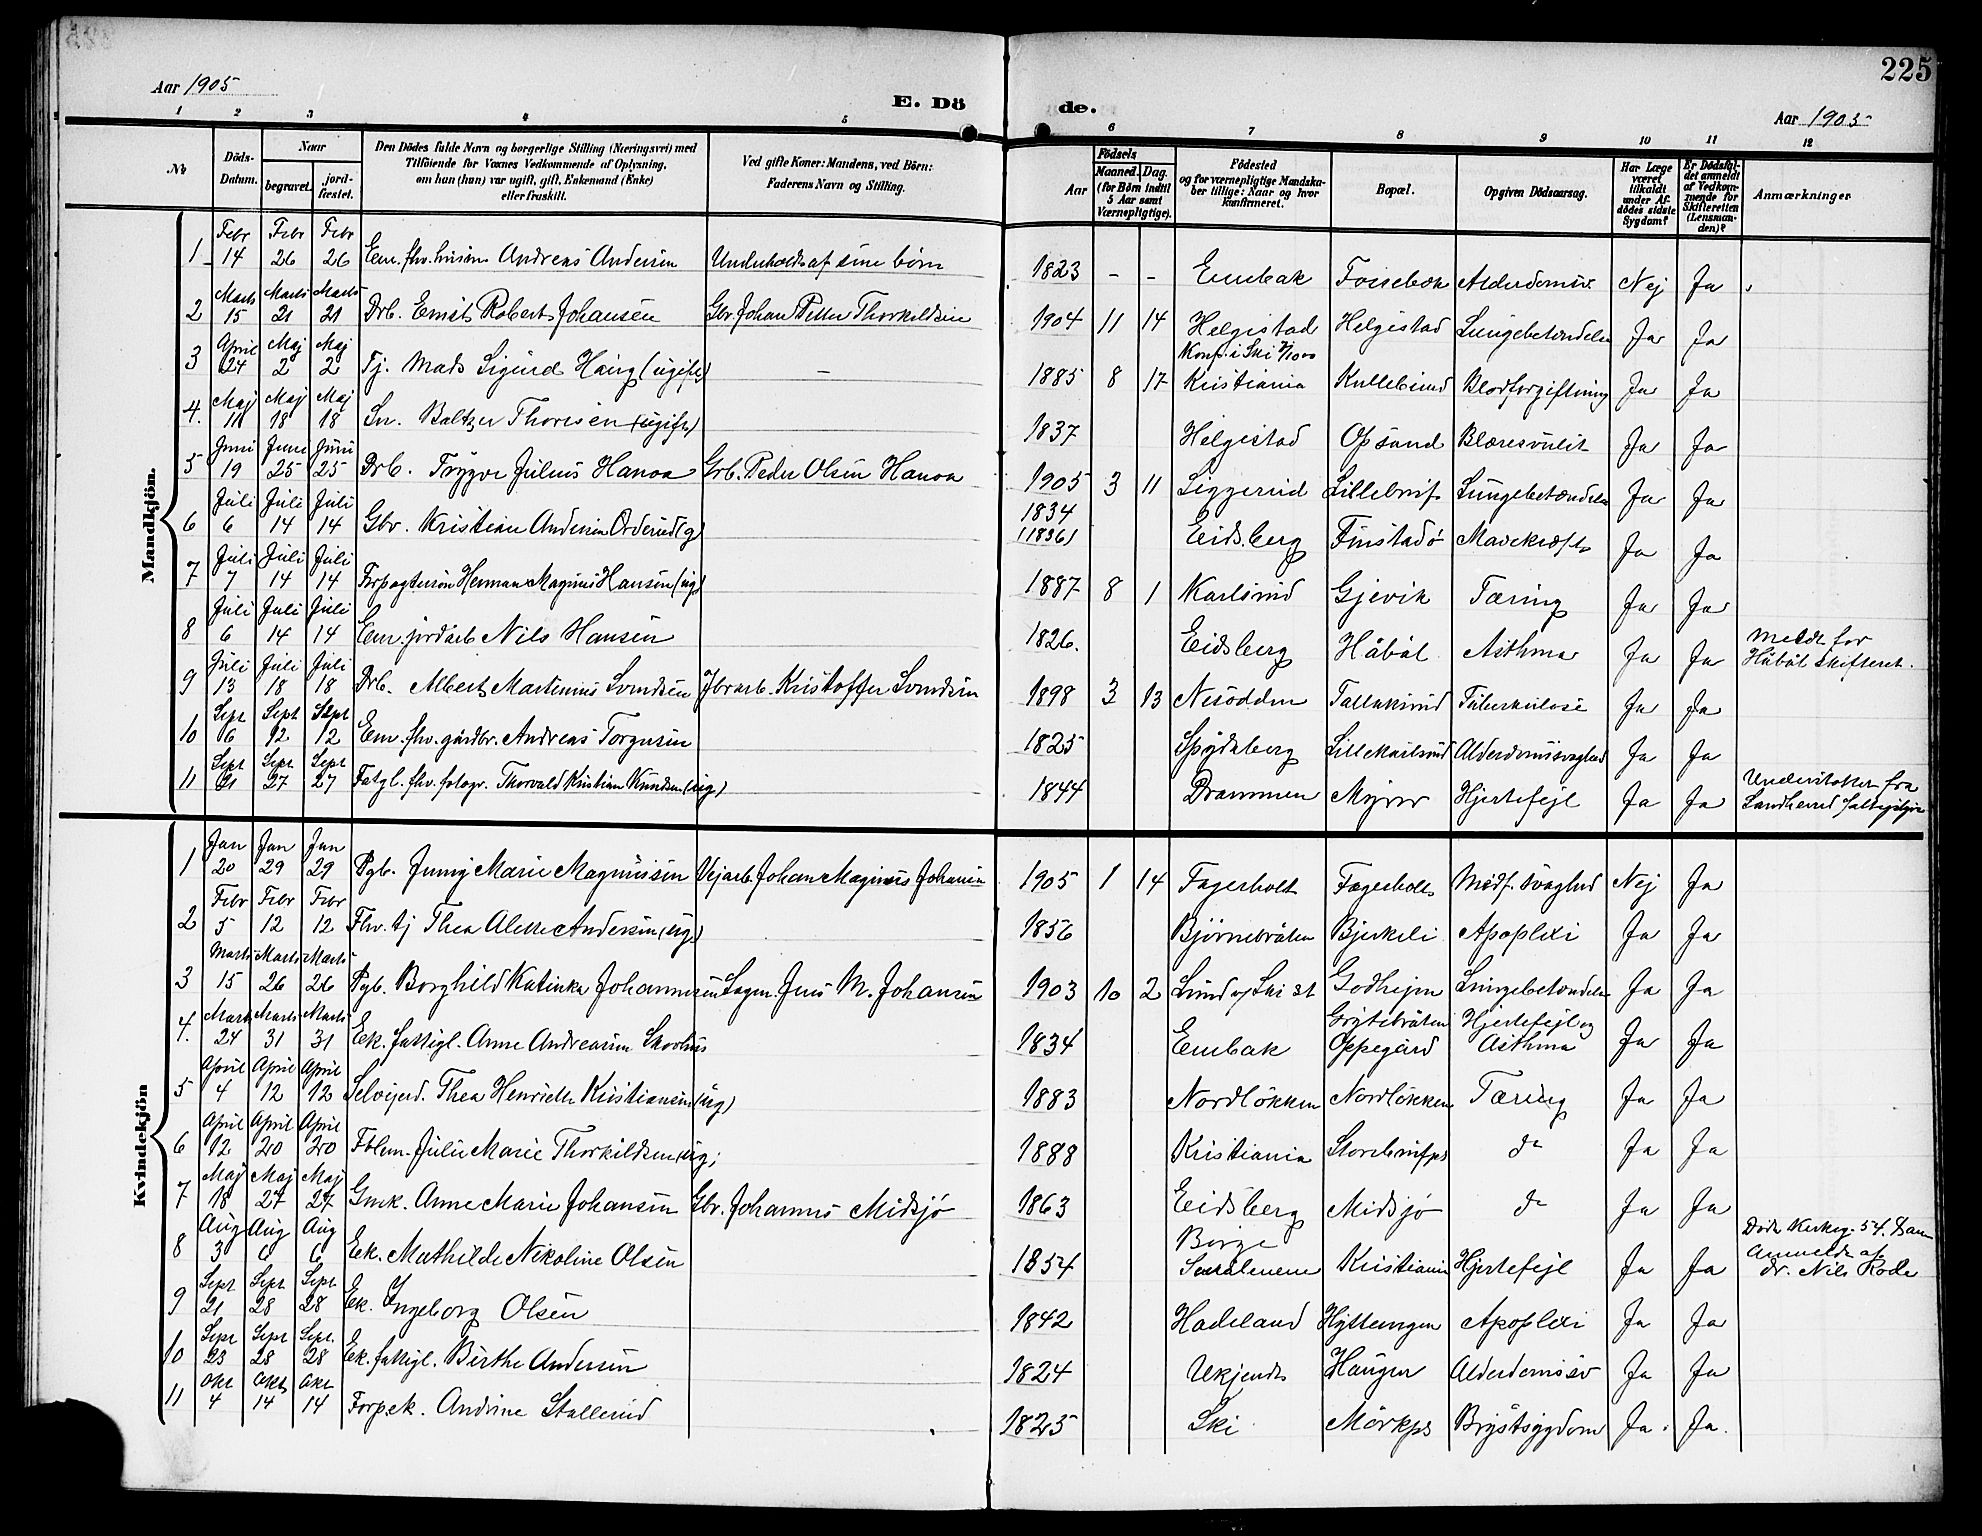 225
Aar 1905
E. Dö
de.
Aar 1905
1 2 3 4 5 6 7 8 9 10 11 12
No
Döds-Datum.
Naar
begravet.
jord-fæstet.
Den Dödes fulde Navn og borgerlige Stilling (Næringsvei) med
Tilföiende for Voxnes Vedkommende af Oplysning,
om han (hun) var ugift, gift, Enkemand (Enke)
eller fraskilt.
Ved gifte Koner: Mandens, ved Börn:
Faderens Navn og Stilling.
Födsels
Aar
Maaned. Dag.
(for Börn indtil
5 Aar samt
Værnepligtige).
Födested
og for værnepligtige Mandska-
ber tillige: Naar og hvor
konfirmeret.
Bopæl.
Opgiven Dödsaarsag.
Har Læge
været
tilkaldt
under Af-
dödes sidste
Sygdom?
Er Dödsfal-
det anmeldt
af Vedkom-
mende for
Skifteretten
(Lensman-
den)?
Anmærkninger
Mandkjön.
1 Febr 14 Febr 26 Febr 26 Em. fhv. husm. Andreas Andersen Underholdt af sine börn 1823 - - Eenbak Alderdomssv. Nej Ja
2 Marts 15 Marts 21 Marts 21 Drb. Ernst Robert Johansen Gbr. Johan Petter Thorkildsen 1904 11 14 Helgistad Helgistad Lungebetændelse Ja Ja
3 April 24 Maj 2 Maj 2 Tj. Mads Sigurd Haug (ugift) - 1885 8 17 Konf. i Ski Kristiania Kullebund Blodforgiftning Ja Ja
4. Maj 11 Maj 18 Maj 18 Sn. Baltzer Thoresen (ugift) 1837 Helgistad Opsand Blæresvulst Ja Ja
5 Juni 19 Juni 25 Juni 25 Drb. Trygve Julius Hanoa Grb. Peder Olsen Hanoa 1905 3 11 Siggerud Lungebetændelse Ja Ja
6 Juli 6 Juli 14 Juli 14 Gbr. Kristian Andersen Orderud (g) 1834 (1836) Eidsberg Finstadö Mavekræft Ja Ja
7 Juli 7 Juli 14 Juli 14 Forpagtersön Herman Magnus Hansen (ug) 1887 8 1 Karlsrud Gjevik Tæring Ja Ja
8 Juli 6 Juli 14 Juli 14 Em. jordarb Nils Hansen 1826. Eidsberg Håböl Asthma Ja Ja Meldt for Håböl Skifteret.
9 Juli 13 Juli 18 Juli 18 Drb. Albert Martinius Svendsen Jbrarb. Kristoffer Svendsen 1898 3 13 Nesodden Tallaksrud Tuberkulose Ja Ja
10 Sept 6 Sept 12 Sept 12 Em. fhv. gårdbr. Andreas Torgersen 1825 Spydeberg Lille Karlsrud Alderdomssvaghed Ja Ja
11 Sept 21 Sept 27 Sept 27 Fatgl. fhv. fotogr. Thorvald Kristian Knudsen (ug) 1844 Drammen Myrer Hjertefejl Ja Ja Understöttet fra
Kvindekjön
1 Jan 20 Jan 29 Jan 29 Pgb. Jenny Marie Magnussen Vejarb. Johan Magnus Johansen 1905 1 14 Fagerholt Fagerholt Medf. svaghed Nej Ja
2 Febr 5 Febr 12 Febr 12 Fhv. tj Thea Alette Andersen (ug) 1856 Björnebråten Bjerkeli Apoplexi Ja Ja
3 Marts 15 Marts 26 Marts 26 Pgb. Borghild Katinka Johannesen Sagm. Jens M. Johansen 1903 10 2 Lund v/ Ski st Godhejm Lungebetændelse Ja Ja
4. Marts 24 Marts 31 Marts 31 Ek. fattigl. Anne Andreasen Skovhus 1834 Eenbak Grytebråten Oppegård Hjertefejl og Asthma Ja Ja
5 April 4 April 12 April 12 Selvejerd. Thea Henriette Kristiansen (ug) 1883 Nordlökken Nordlökken Tæring Ja Ja
6 April 12 April 20 April 20 Julie Marie Thorkildsen (ug) 1888 Kristiania do Ja Ja
7 Maj 18 Maj 27 Maj 27 Gmk. Anne Marie Johansen Gbr. Johannes Midsjö 1863 Eidsberg Midsjö do Ja Ja
8 Aug 3 Aug 6 Aug 6 Ek. Mathilde Nikoline Olsen 1854 Borge Smålenene Kristiania Hjertefejl Ja Ja Anmeldt af dr. Nils Rode
9 Sept 21 Sept 28 Sept 28 Ek. Ingeborg Olsen 1842 Hadeland Hytteengen Apoplexi Ja Ja
10 Sept 23 Sept 28 Sept 28 Ek. fattigl. Birthe Andersen 1824 Ukjendt Haugen Alderdomssv Ja Ja
11 Okt 4 Okt 14 Okt 14 Forp.ek. Andrine Stallerud 1825 Ski Mörkps Brystsygdom Ja. Ja.